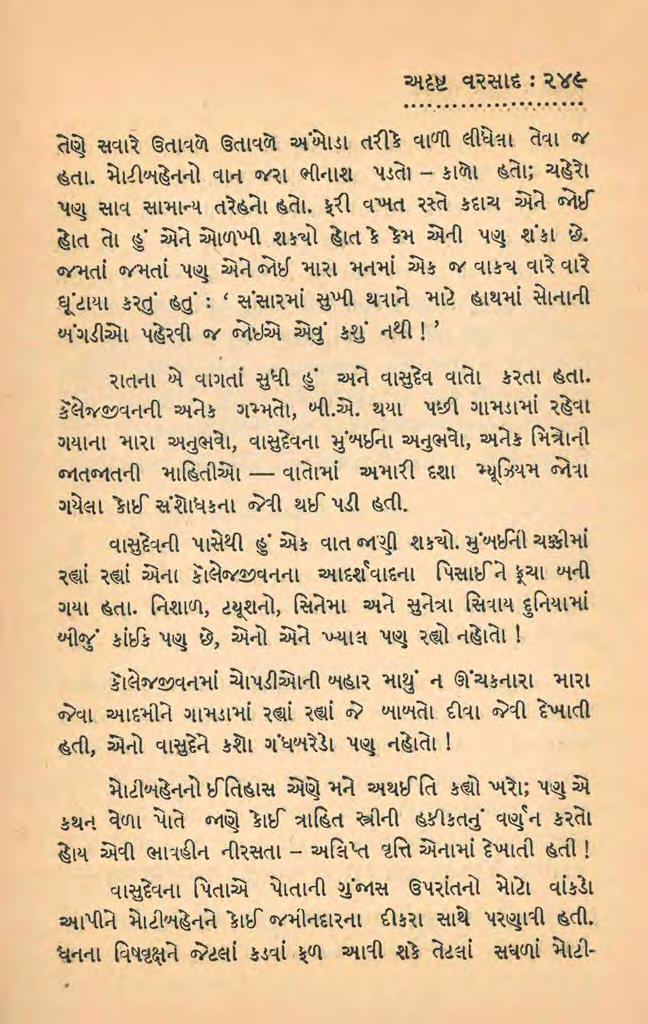 અદૃષ્ટ વરસાદ : ૨૪૯
તેણે સવારે ઉતાવળે ઉતાવળે અંબોડા તરીકે વાળી લીધેલા તેવા જ
હતા. મોટીબહેનનો વાન જરા ભીનાશ પડતો – કાળો હતો; ચહેરો
પણ સાવ સામાન્ય તરેહનો હતો. ફરી વખત રસ્તે કદાચ એને જોઈ
હોત તો હું એને ઓળખી શક્યો હોત કે કેમ એની પણ શંકા છે.
જમતાં જમતાં પણ એને જોઈ મારા મનમાં એક જ વાક્ય વારે વારે
ઘૂંટાયા કરતું હતું : ‘ સંસારમાં સુખી થવાને માટે હાથમાં સોનાની
બંગડીઓ પહેરવી જ જોઈએ એવું કશું નથી ! ’
રાતના બે વાગતાં સુધી હું અને વાસુદેવ વાતો કરતા હતા.
કૉલેજજીવનની અનેક ગમ્મતો, બી.એ. થયા પછી ગામડામાં રહેવા
ગયાના મારા અનુભવો, વાસુદેવના મુંબઈના અનુભવો, અનેક મિત્રોની
જાતજાતની માહિતીઓ — વાતોમાં અમારી દશા મ્યૂઝિયમ જોવા
ગયેલા કોઈ સંશોધકના જેવી થઈ પડી હતી.
વાસુદેવની પાસેથી હું એક વાત જાણી શક્યો. મુંબઈની ચક્કીમાં
રહ્યાં રહ્યાં એના કૉલેજજીવનના આદર્શવાદના પિસાઈને કૂચા બની
ગયા હતા. નિશાળ, ટ્યૂશનો, સિનેમા અને સુનેત્રા સિવાય દુનિયામાં
બીજું કાંઈક પણ છે, એનો એને ખ્યાલ પણ રહ્યો નહોતો !
કૉલેજજીવનમાં ચોપડીઓની બહાર માથું ન ઊંચકનારા મારા
જેવા આદમીને ગામડામાં રહ્યાં રહ્યાં જે બાબતો દીવા જેવી દેખાતી
હતી, એનો વાસુદેને કશો ગંધબરેડો પણ નહોતો !
મોટીબહેનનો ઈતિહાસ એણે મને અથઈતિ કહ્યો ખરો; પણ એ
કથન વેળા પોતે જાણે કોઈ ત્રાહિત સ્ત્રીની હકીકતનું વર્ણન કરતો
હોય એવી ભાવહીન નીરસતા – અલિપ્ત વૃત્તિ એનામાં દેખાતી હતી !
વાસુદેવના પિતાએ પોતાની ગુંજાસ ઉપરાંતનો મોટો વાંકડો
આપીને મોટીબહેનને કોઈ જમીનદારના દીકરા સાથે પરણાવી હતી.
ધનના વિષવૃક્ષને જેટલાં કડવાં ફળ આવી શકે તેટલાં સઘળાં મોટી-